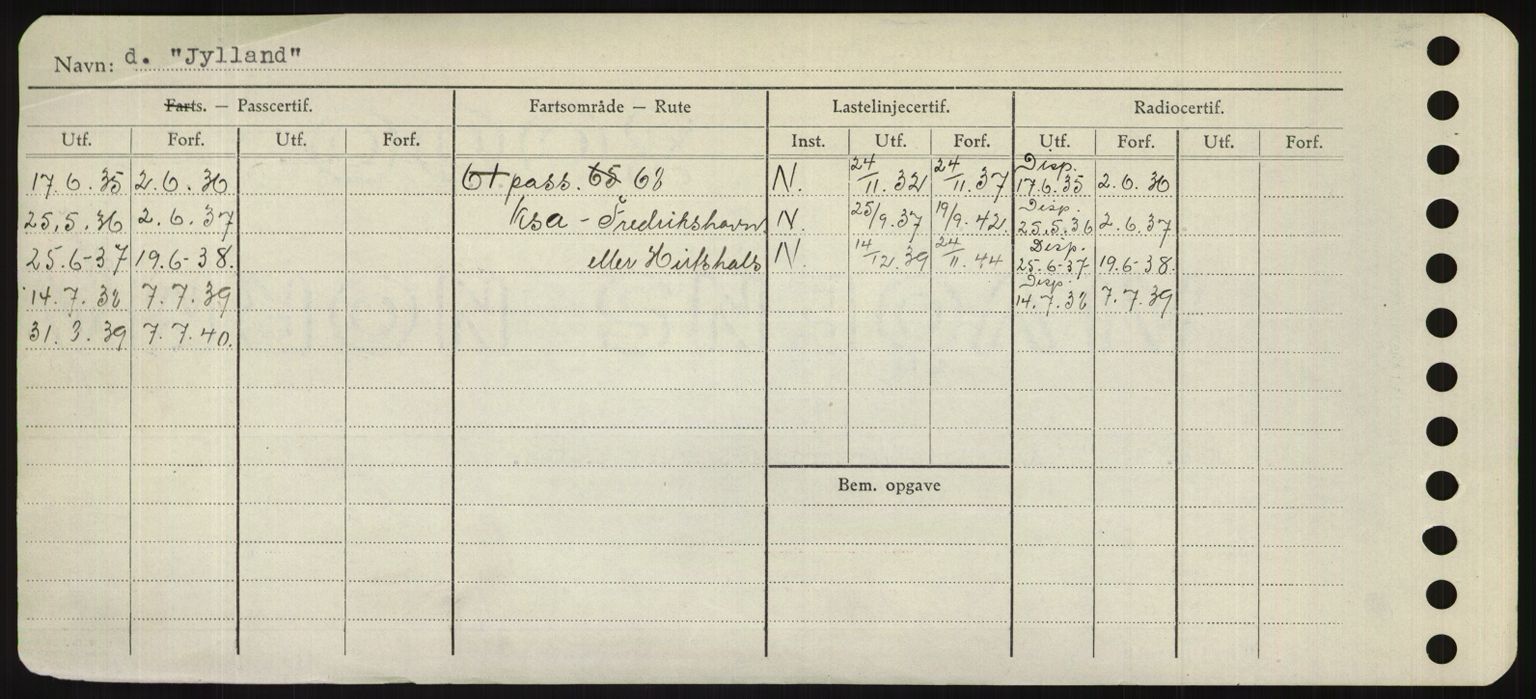 Navn: d. "Jylland"
Farts. — Passcertif. Fartsområde — Rute Lastelinjecertif. Radiocertif.
Utf. Forf. Utf. Forf. Inst. Utf. Forf. Utf. Forf. Utf. Forf.
Disp.
17.6.35 2.6.36 61 pass. 65 68 N. 24/11.32 24/11.37 17.6.35 2.6.36
Disp.
25.5.36 2.6.37 Ksa - Fredrikshavn N. 25/9.37 19/9.42 25.5.36 2.6.37
Disp.
25.6-37 19.6-38. eller Hirtshals N. 14/12.39 24/11.44 25.6-37 19.6-38.
Disp.
14.7.38 7.7.39 14.7.38 7.7.39
31.3.39 7.7.40.
Bem. opgave